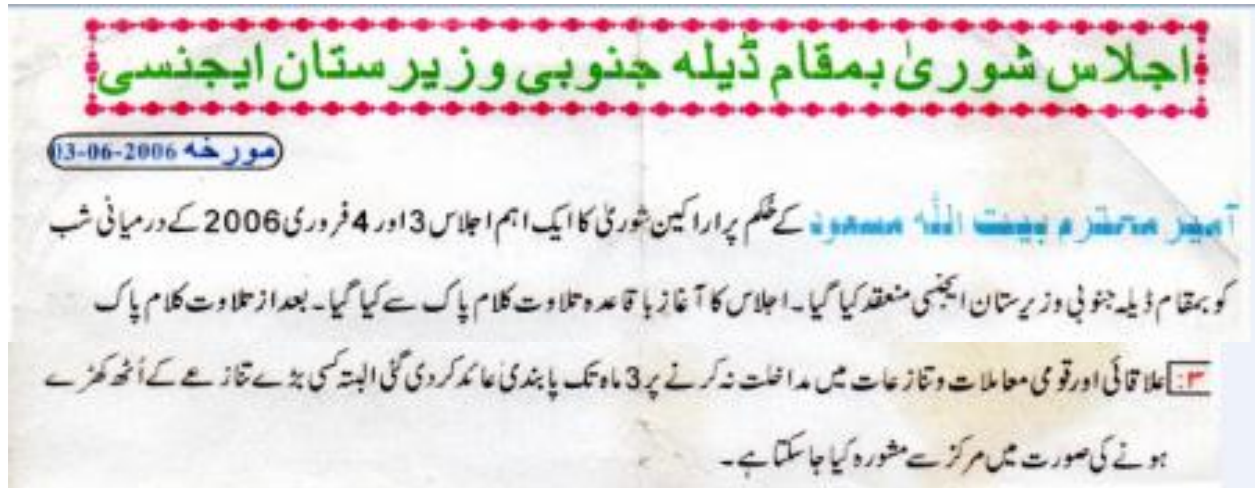 اجلاس شوریٰ بمقام ڈیلہ جنوبی وزیرستان ایجنسی
مورخہ 03-06-2006
آمیر محترم بیت اللہ مسعود کے حُکم پر اراکین شوریٰ کا ایک اہم اجلاس 3 اور 4 فروری 2006 کے درمیانی شب
کو بمقام ڈیلہ جنوبی وزیرستان ایجنسی منعقد کیا گیا۔ اجلاس کا آغاز باقاعدہ تلاوت کلام پاک سے کیا گیا۔ بعد از تلاوت کلام پاک
۳: علاقائی اور قومی معاملات و تنازعات میں مداخلت نہ کرنے پر 3 ماہ تک پابندی عائد کردی گئی البتہ کسی بڑے تنازعے کے اُٹھ کھڑے
ہونے کی صورت میں مرکز سے مشورہ کیا جاسکتا ہے۔